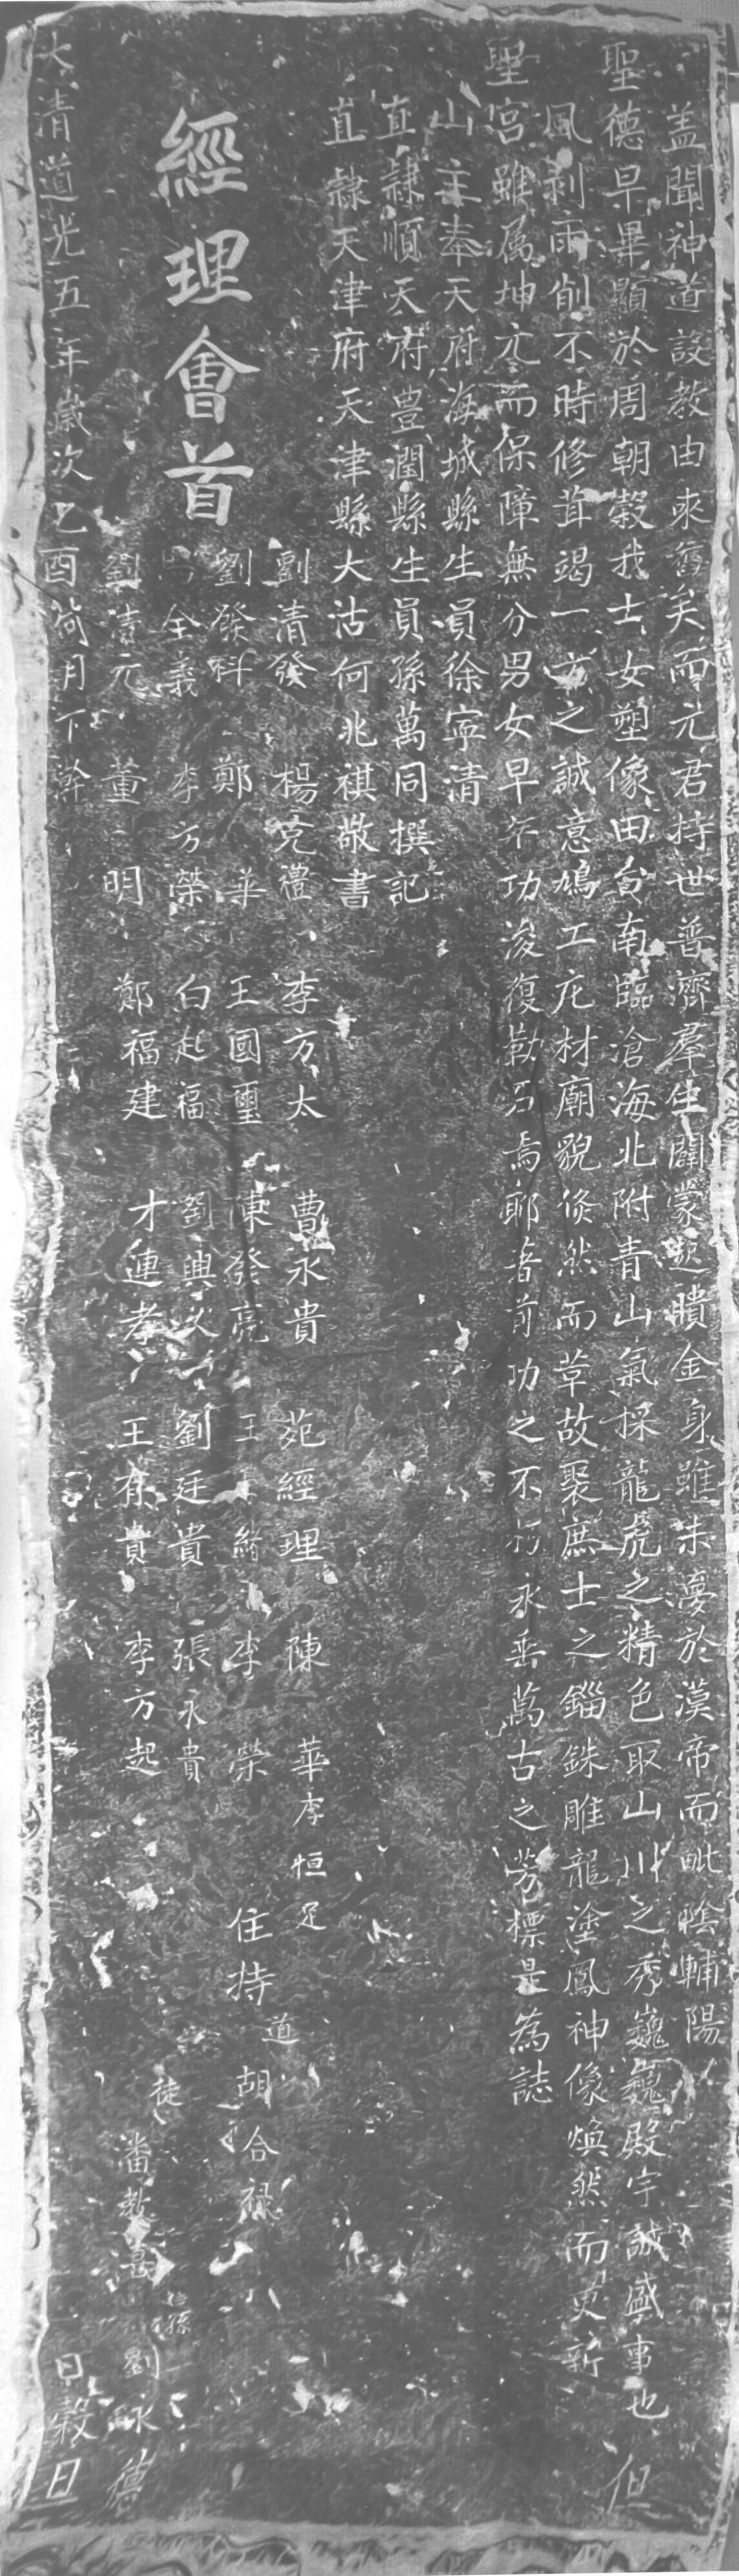 盖聞神道設教由來舊矣而元君持世普濟羣生闢蒙起瞶金身雖未夢於漢帝而毗陰輔陽
聖德早畢顯於周朝穀我士女塑像田台南臨滄海北附青山氣採龍虎之精色取山川之秀巍巍殿宇誠盛事也但
風剥雨削不時修茸竭一方之誠意鳩工庀材廟貌倏然而草故裂庶士之錙銖雕龍塗鳳神像煥然而更新
聖宮雖属坤亢而保障無分男女早年功浚復勒石焉耶著前功之不朽永垂萬古之芳標是為誌
山主奉天府海城縣生員徐寧清
直隷順天府豊潤縣生員孫萬同撰記
直隷天津府天津縣大沽何兆祺敬書
經理會首
劉清發 楊克禮 李方太 曹永貴 苑經理 陳華 李恒足
劉發科 鄭華 王國璽 陳發亮 王緒 李榮 住持道胡合禄
全義 李方榮 白起福 劉興 劉廷貴 張永貴 徒
劉清元 董明 鄭福建 才連孝 王有貴 李方起 潘教 劉永德
大清道光五年歲次乙酉荷月下浣日榖旦